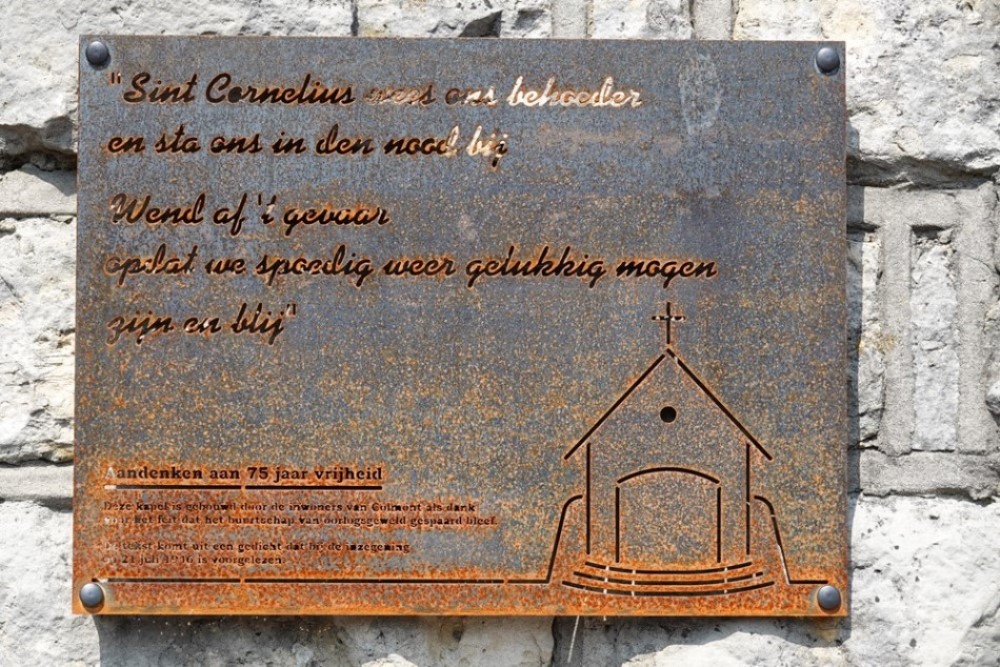 "Sint Cornelius wees ons behoeder
en sta ons in den nood bij
Wend af 't gevaar
opdat we spoedig weer gelukkig mogen
zijn en blij"
Aandenken aan 75 jaar vrijheid
Deze kapel is gebouwd door de inwoners van Colmont als dank
voor het feit dat het buurtschap van oorlogsgeweld gespaard bleef.
tekst komt uit een gedicht dat bij de inzegening
21 juli is voorgelezen